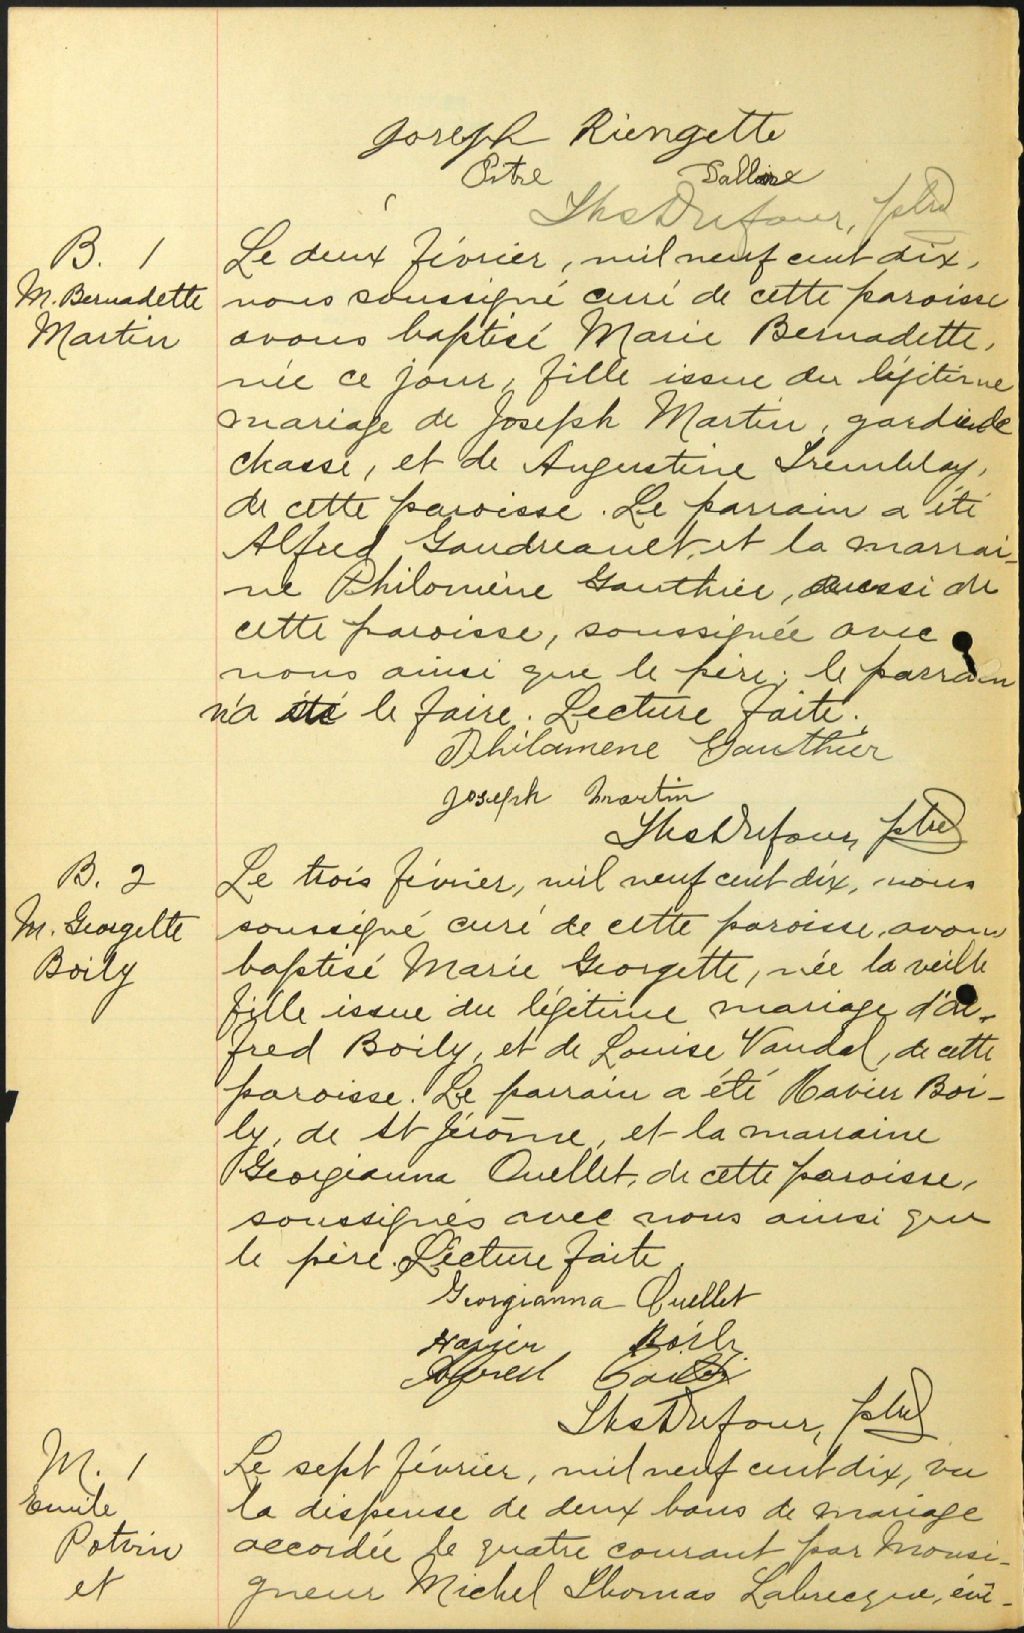 Joseph Riengette
Ths Dufour, ptre
B. 1
M. Bernadette
Martin
Le deux février, mil neuf cent dix,
nous soussigné curé de cette paroisse
avons baptisé Marie Bernadette,
née ce jour, fille issue du légitime
mariage de Joseph Martin, gardien de
chasse, et de Augustine Tremblay,
de cette paroisse. Le parrain a été
Alfred Gaudreault, et la marrai-
ne Philomène Gauthier, aussi de
cette paroisse, soussignée avec
nous ainsi que le père; le parrain
n'a été le faire. Lecture faite.
Philamene Gauthier
Joseph Martin
Ths Dufour, ptre
B. 2
M. Georgette
Boily
Le trois février, mil neuf cent dix, nous
soussigné curé de cette paroisse, avons
baptisé Marie Georgette, née la veille
fille issue du légitime mariage d'Al-
fred Boily, et de Louise Vandal, de cette
paroisse. Le parrain a été Xavier Boi-
ly, de St Jérôme, et la marraine
Georgianna Ouellet, de cette paroisse,
soussignés avec nous ainsi que
le père. Lecture faite.
Georgianna Ouellet
Xavier Boily
Alfred
Ths Dufour, ptre
M. 1
Emile
Potvin
et
Le sept février, mil neuf cent dix, vu
la dispense de deux bans de mariage
accordée le quatre courant par Monsi-
gneur Michel Thomas Labrecque, évê-